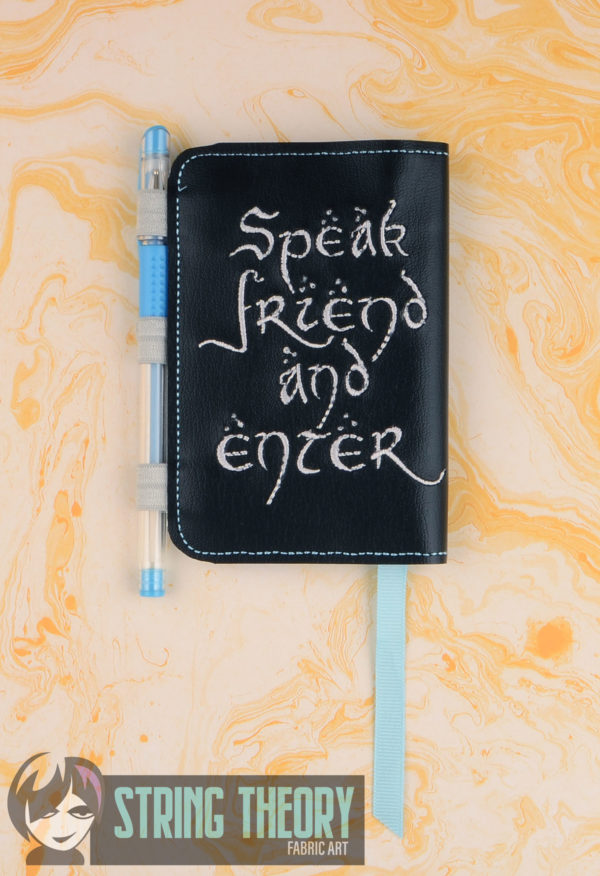 Speak
friend
and
enter
STRING THEORY
FABRIC ART